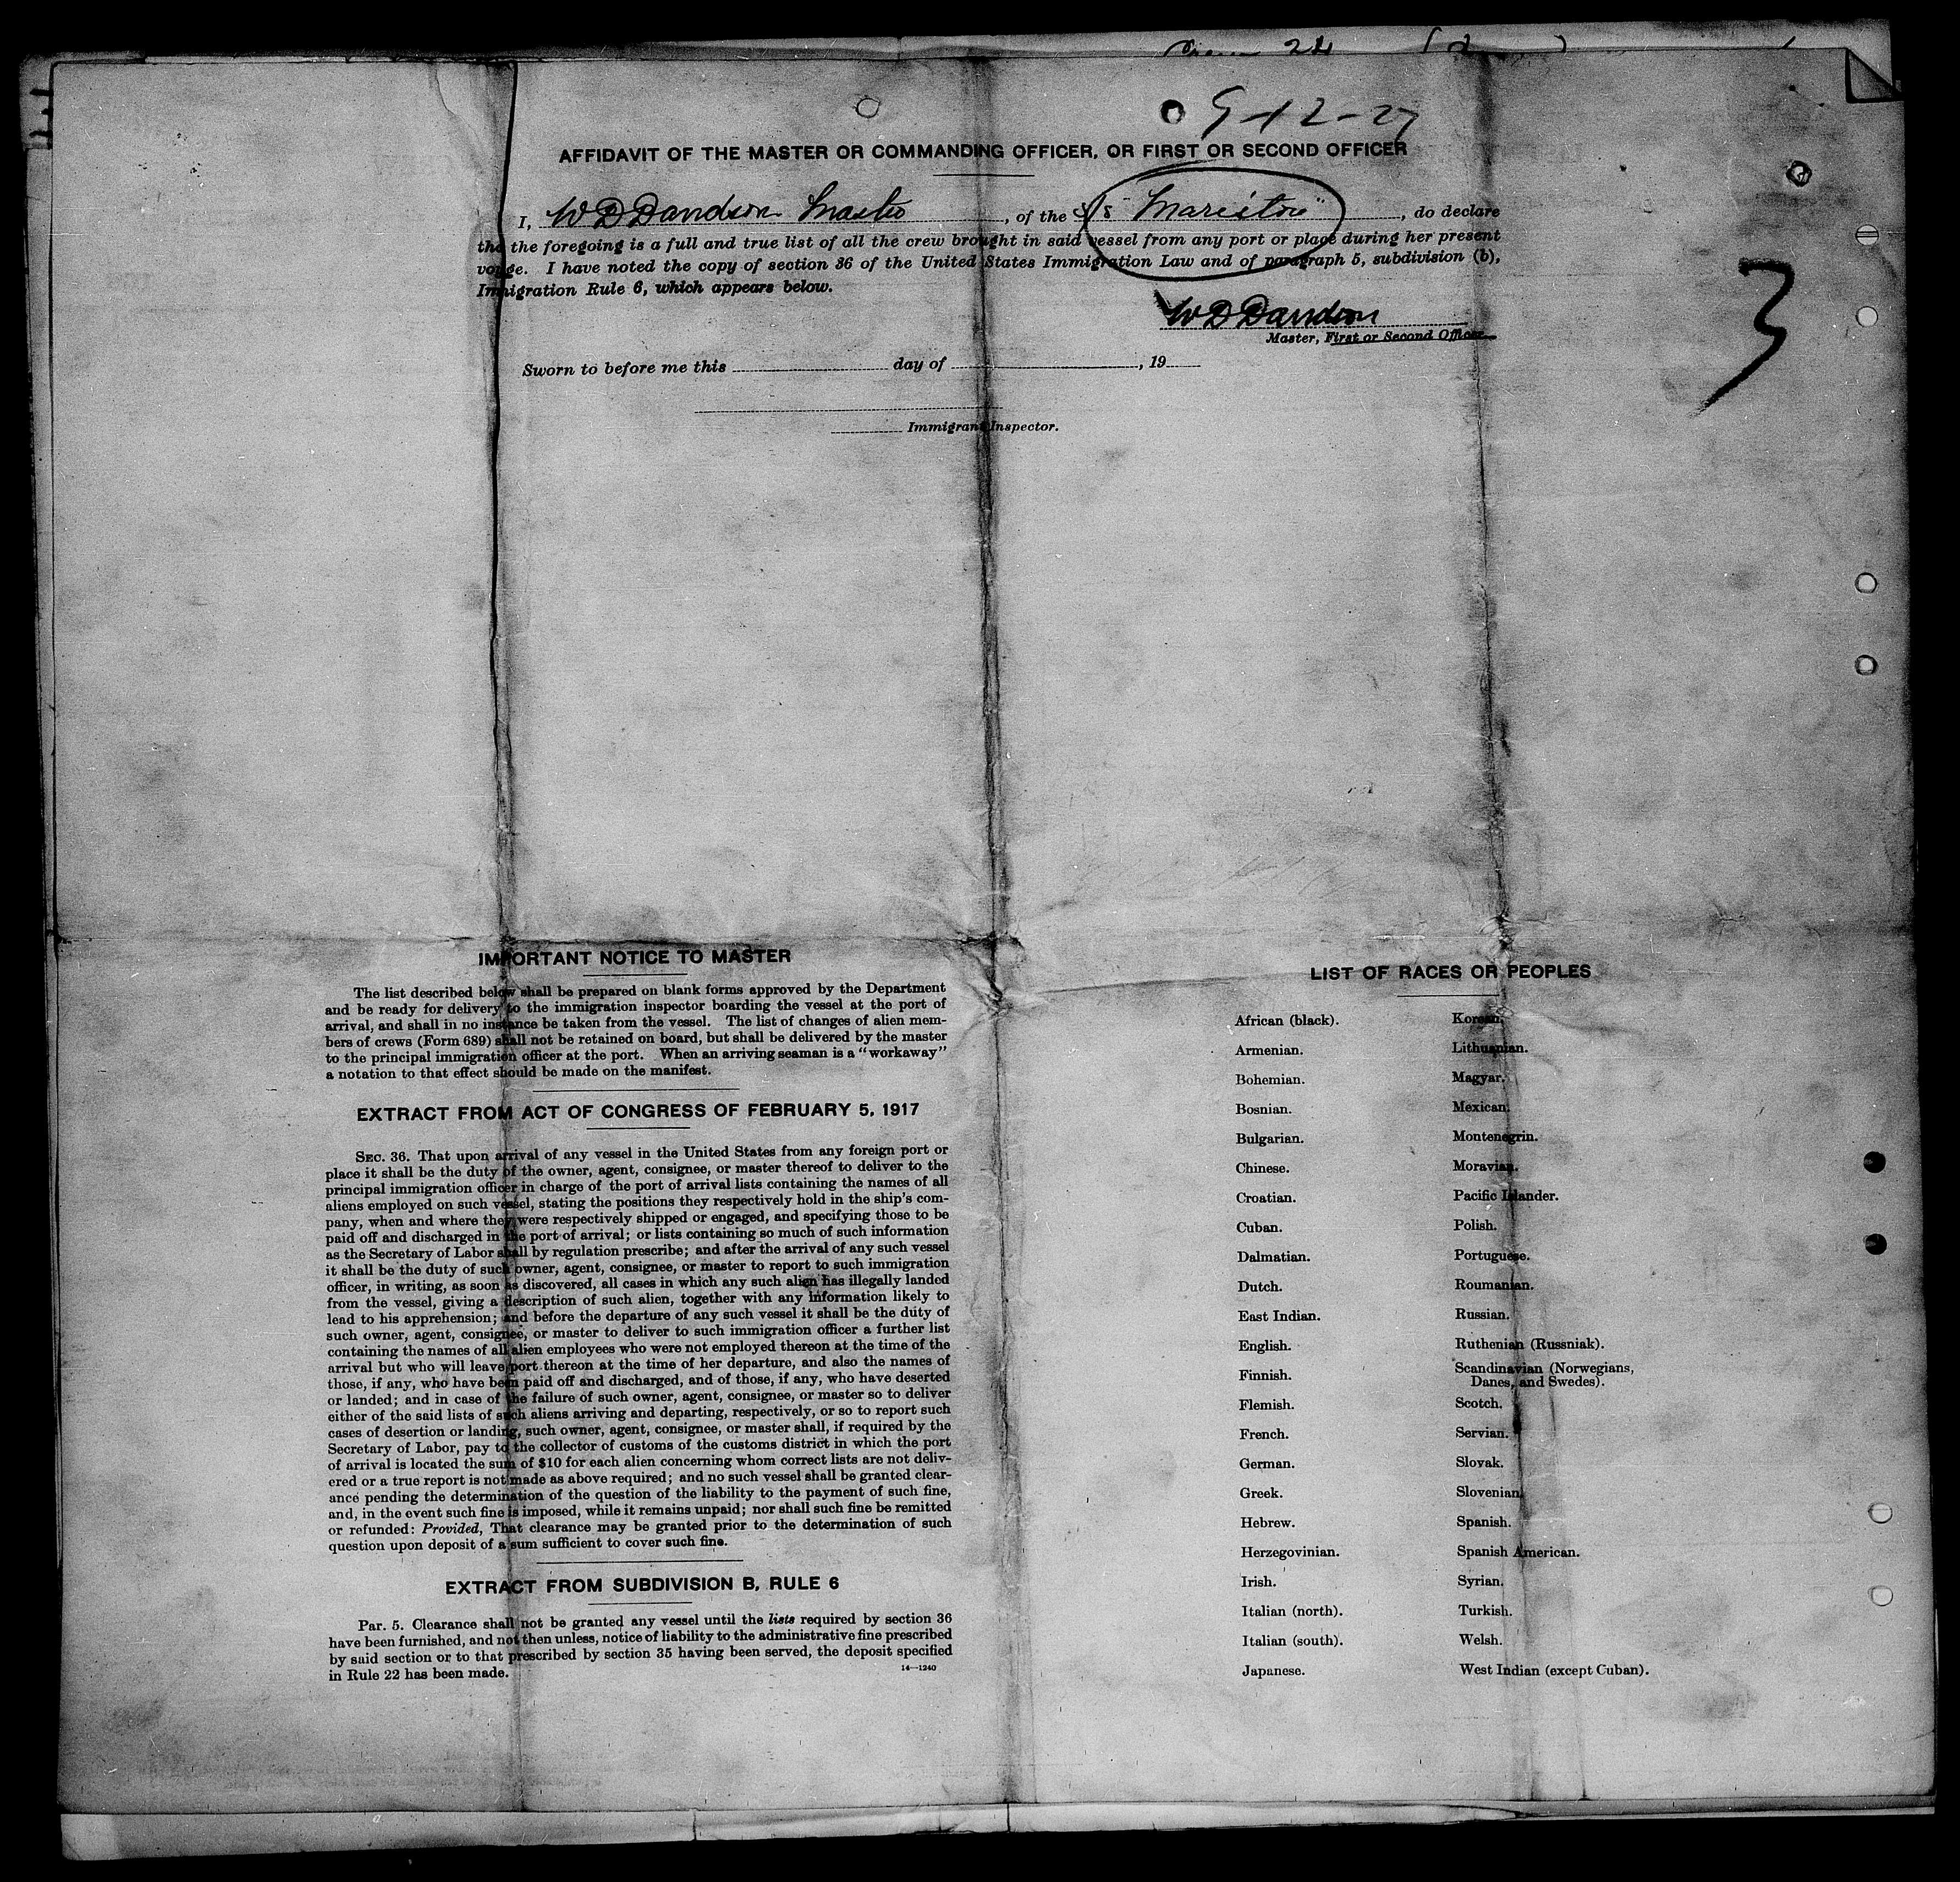 24
9-12-27
AFFIDAVIT OF THE MASTER OR COMMANDING OFFICER, OR FIRST OR SECOND OFFICER
I, W D Davidson Master, of the SS "Maristow", do declare
the the foregoing is a full and true list of all the crew brought in said vessel from any port or place during her present
voyage. I have noted the copy of section 36 of the United States Immigration Law and of paragraph 5, subdivision (b),
Immigration Rule 6, which appears below.
W D Davidson
Master, First or Second Officer
3
Sworn to before me this day of , 19
Immigrant Inspector.
IMPORTANT NOTICE TO MASTER
The list described below shall be prepared on blank forms approved by the Department
and be ready for delivery to the immigration inspector boarding the vessel at the port of
arrival, and shall in no instance be taken from the vessel. The list of changes of alien mem-
bers of crews (Form 689) shall not be retained on board, but shall be delivered by the master
to the principal immigration officer at the port. When an arriving seaman is a "workaway"
a notation to that effect should be made on the manifest.
EXTRACT FROM ACT OF CONGRESS OF FEBRUARY 5, 1917
SEC. 36. That upon arrival of any vessel in the United States from any foreign port or
place it shall be the duty of the owner, agent, consignee, or master thereof to deliver to the
principal immigration officer in charge of the port of arrival lists containing the names of all
aliens employed on such vessel, stating the positions they respectively hold in the ship's com-
pany, when and where they were respectively shipped or engaged, and specifying those to be
paid off and discharged in the port of arrival; or lists containing so much of such information
as the Secretary of Labor shall by regulation prescribe; and after the arrival of any such vessel
it shall be the duty of such owner, agent, consignee, or master to report to such immigration
officer, in writing, as soon as discovered, all cases in which any such alien has illegally landed
from the vessel, giving a description of such alien, together with any information likely to
lead to his apprehension; and before the departure of any such vessel it shall be the duty of
such owner, agent, consignee, or master to deliver to such immigration officer a further list
containing the names of all alien employees who were not employed thereon at the time of the
arrival but who will leave port thereon at the time of her departure, and also the names of
those, if any, who have been paid off and discharged, and of those, if any, who have deserted
or landed; and in case of the failure of such owner, agent, consignee, or master so to deliver
either of the said lists of such aliens arriving and departing, respectively, or so to report such
cases of desertion or landing, such owner, agent, consignee, or master shall, if required by the
Secretary of Labor, pay to the collector of customs of the customs district in which the port
of arrival is located the sum of $10 for each alien concerning whom correct lists are not deliv-
ered or a true report is not made as above required; and no such vessel shall be granted clear-
ance pending the determination of the question of the liability to the payment of such fine,
and, in the event such fine is imposed, while it remains unpaid; nor shall such fine be remitted
or refunded: Provided, That clearance may be granted prior to the determination of such
question upon deposit of a sum sufficient to cover such fine.
EXTRACT FROM SUBDIVISION B, RULE 6
Par. 5. Clearance shall not be granted any vessel until the lists required by section 36
have been furnished, and not then unless, notice of liability to the administrative fine prescribed
by said section or to that prescribed by section 35 having been served, the deposit specified
in Rule 22 has been made.
14—1240
LIST OF RACES OR PEOPLES
African (black).
Armenian.
Bohemian.
Bosnian.
Bulgarian.
Chinese.
Croatian.
Cuban.
Dalmatian.
Dutch.
East Indian.
English.
Finnish.
Flemish.
French.
German.
Greek.
Hebrew.
Herzegovinian.
Irish.
Italian (north).
Italian (south).
Japanese.
Korean.
Lithuanian.
Magyar.
Mexican.
Montenegrin.
Moravian.
Pacific Islander.
Polish.
Portuguese.
Roumanian.
Russian.
Ruthenian (Russniak).
Scandinavian (Norwegians,
Danes, and Swedes).
Scotch.
Servian.
Slovak.
Slovenian.
Spanish.
Spanish American.
Syrian.
Turkish.
Welsh.
West Indian (except Cuban).